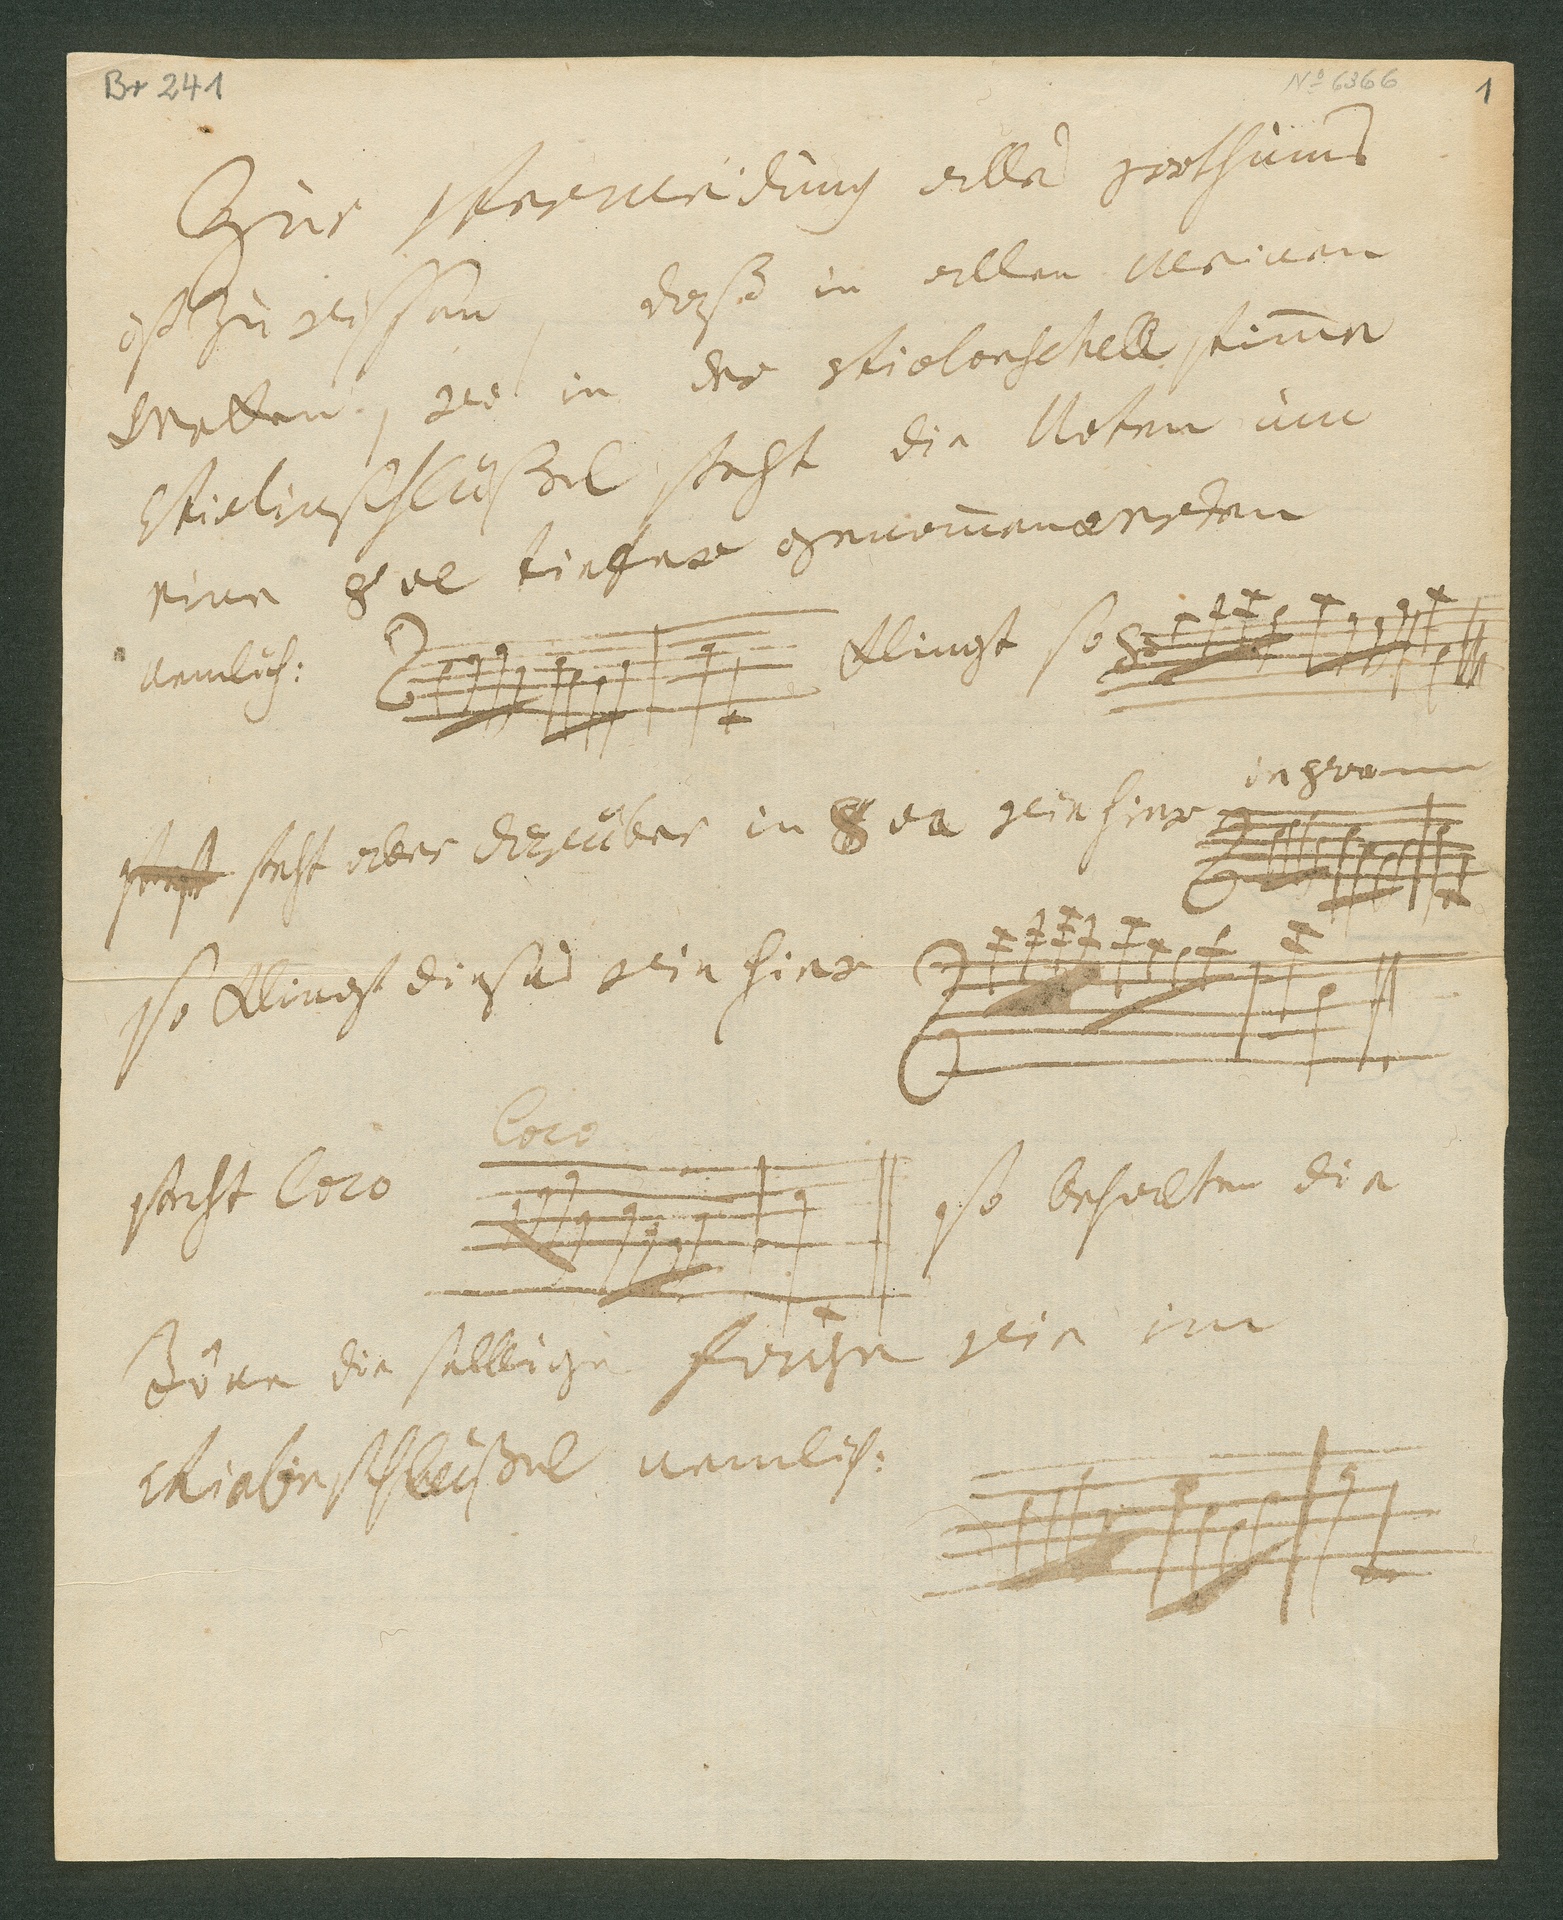 Br 241
No 6366
1
Zur Vermeidung alles Irrthums
ist zu wissen, daß in allen meinen
Werken, wo in der Violonschell stimme
Violinschlüßel steht die Noten um
eine 8ve tiefer genommen werden
nemlich: klingt so
steht aber darüber in 8va wie hier in 8va
so klingt dieses wie hier
steht loco loco so behalten die
Töne die selbige wie im
Violinschlüßel nemlich: